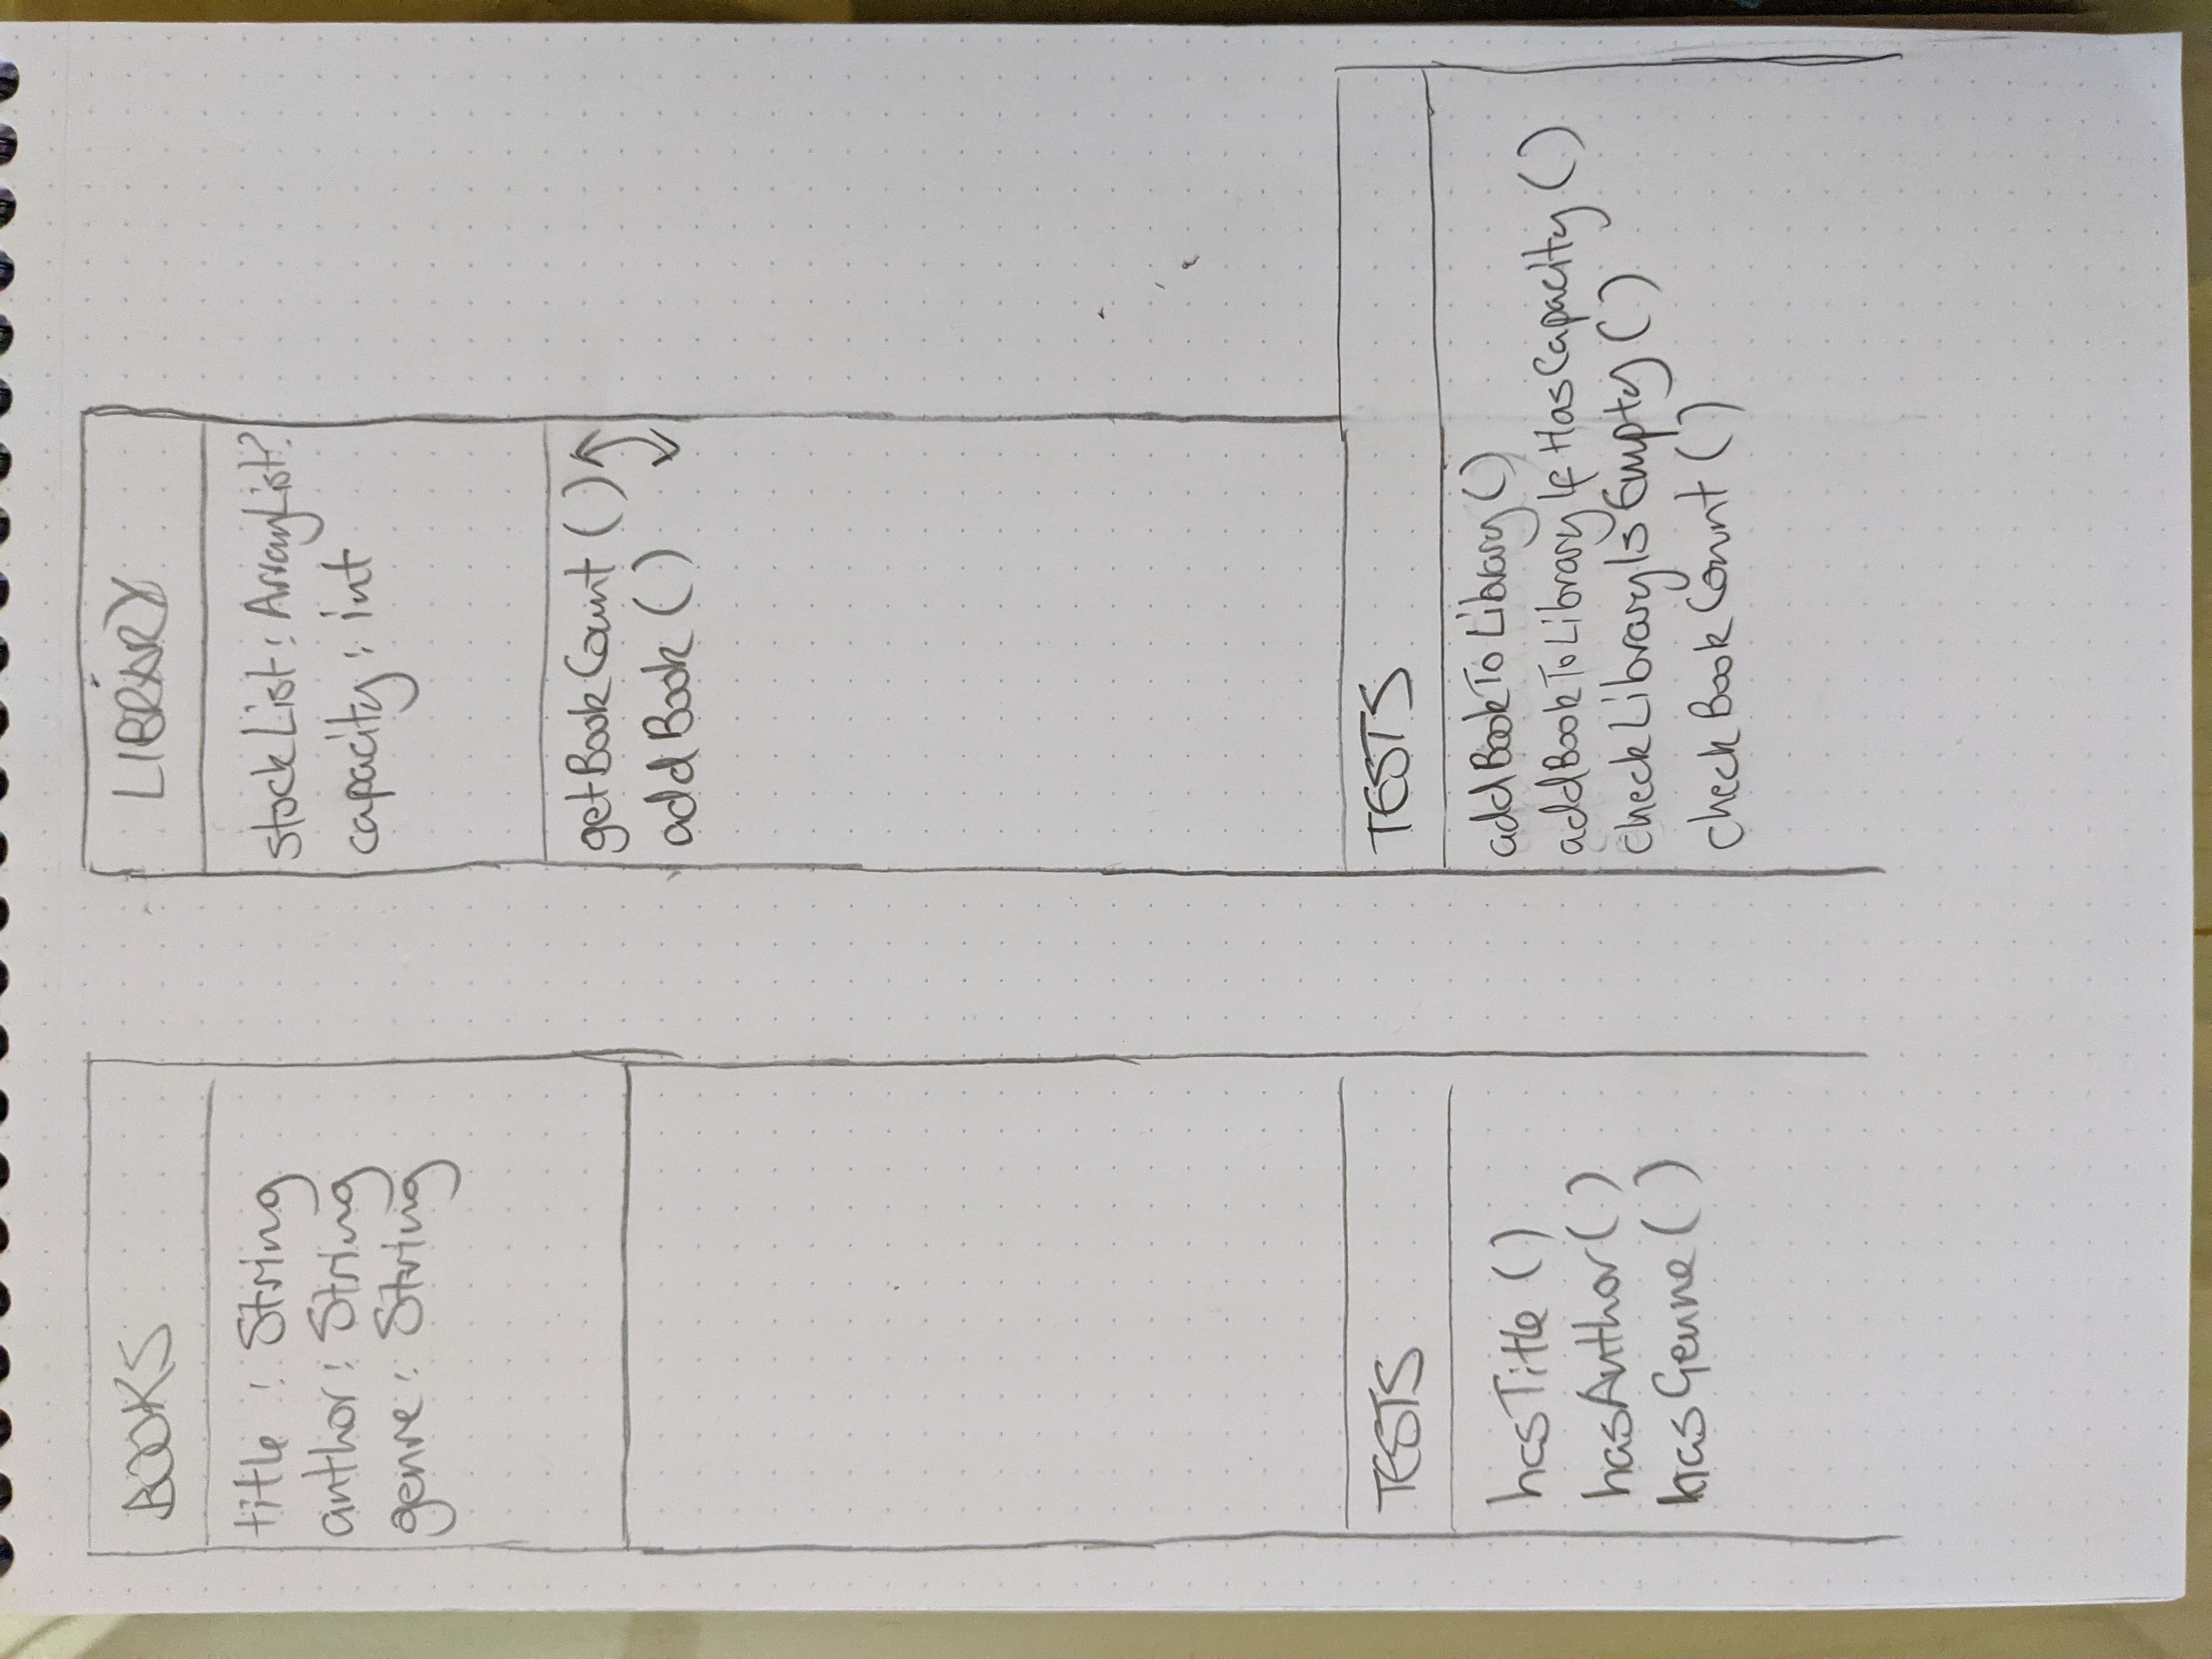 BOOKS
title : String
author : String
genre : String
TESTS
hasTitle ()
hasAuthor ()
hasGenre ()
LIBRARY
stockList : ArrayList?
capacity : int
getBookCount ()
addBook ()
TESTS
addBookToLibrary ()
addBookToLibraryIfHasCapacity ()
checkLibraryIsEmpty ()
checkBookCount ()